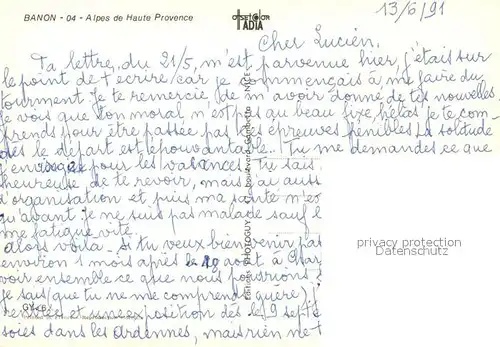 BANON - 04 - Alpes de Haute Provence
ADIA
13/6/91
Cher Lucien,
Ta lettre, du 21/5, m'est parvenue hier, j'étais sur
le point de t'ecrire, car je commençais à me faire du
tourment. Je te remercie, de m'avoir donné de tes nouvelles
Je vois que ton moral n'est pas au beau fixe, hélas je te com-
prends pour être passée par les épreuves penibles. La solitude
dès le départ est épouvantable. Tu me demandes ce que
j'envisage pour les vacances. Tu sais
heureuse de te revoir, mais j'ai auss
d'organisation et puis ma santé n'es
qu'avant je ne suis pas malade sauf
me fatigue vite.
Alors voilà. Si tu veux bien venir pas
environ 1 mois après le août à
voir ensemble ce que nous pourrions
je sais (que tu ne me comprends guère)
et une exposition dès le 9 sept
dans les ardennes, mais rien ne t
Editions PHOTOGUY boulevard Gambetta NICE
privacy protection
Datenschutz